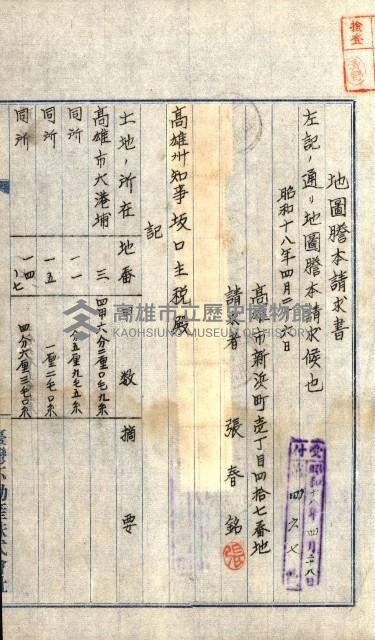 地圖謄本請求書
左記ノ通リ地圖謄本請求候也
昭和十八年四月二六日
高雄市新浜町壱丁目四拾七番地
請求者 張春銘
高雄州知事坂口主税殿
記
土地ノ所在 地番 数 摘要
高雄市大港埔 三 四甲六分二厘〇毛九糸
同所 一一 分五厘九毛五糸
同所 一五 一厘二毛〇糸
同所 一四ノ七 四分六厘三毛〇糸
臺灣不動産株式會社
檢査
受付
昭和十八年四月二八日
四六七
高雄市立歷史博物館
KAOHSIUNG MUSEUM OF HISTORY